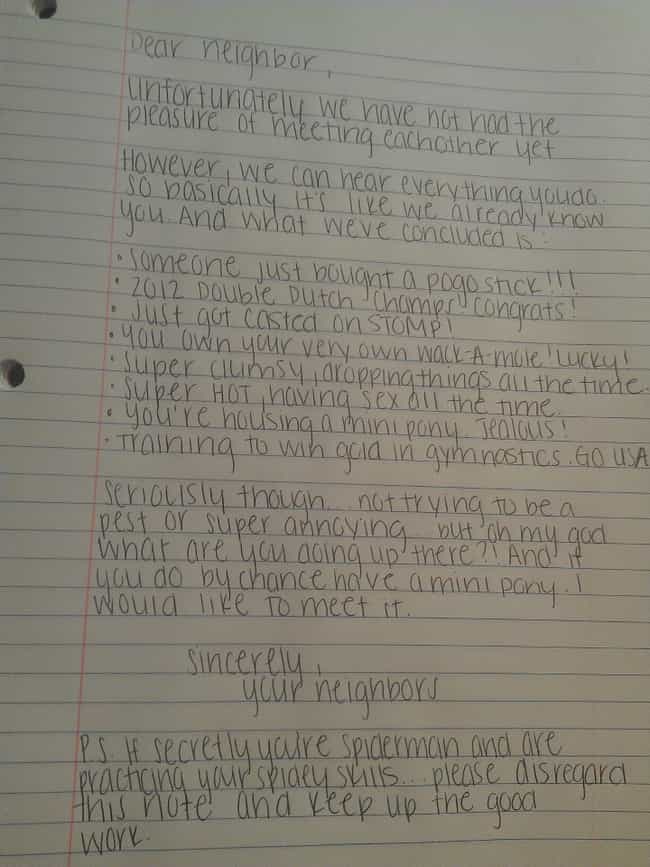 Dear neighbor,
Unfortunately we have not had the
pleasure of meeting eachother yet
However, we can hear everything you do.
So basically it's like we already know
you. And what we've concluded is:
• Someone just bought a pogo stick!!!
• 2012 Double Dutch Champs congrats!
• Just got casted on STOMP!
• You own your very own Wack-A-Mole! Lucky!
• Super clumsy, dropping things all the time.
• Super HOT, having sex all the time.
• You're housing a mini pony. Jealous!
• Training to win gold in gymnastics. GO USA
Seriously though... not trying to be a
pest or super annoying but oh my god
what are you doing up there?! And if
you do by chance have a mini pony. I
would like to meet it.
Sincerely,
your neighbors
P.S. If secretly you're Spiderman and are
practicing your spidey skills... please disregard
this note and keep up the good
work.